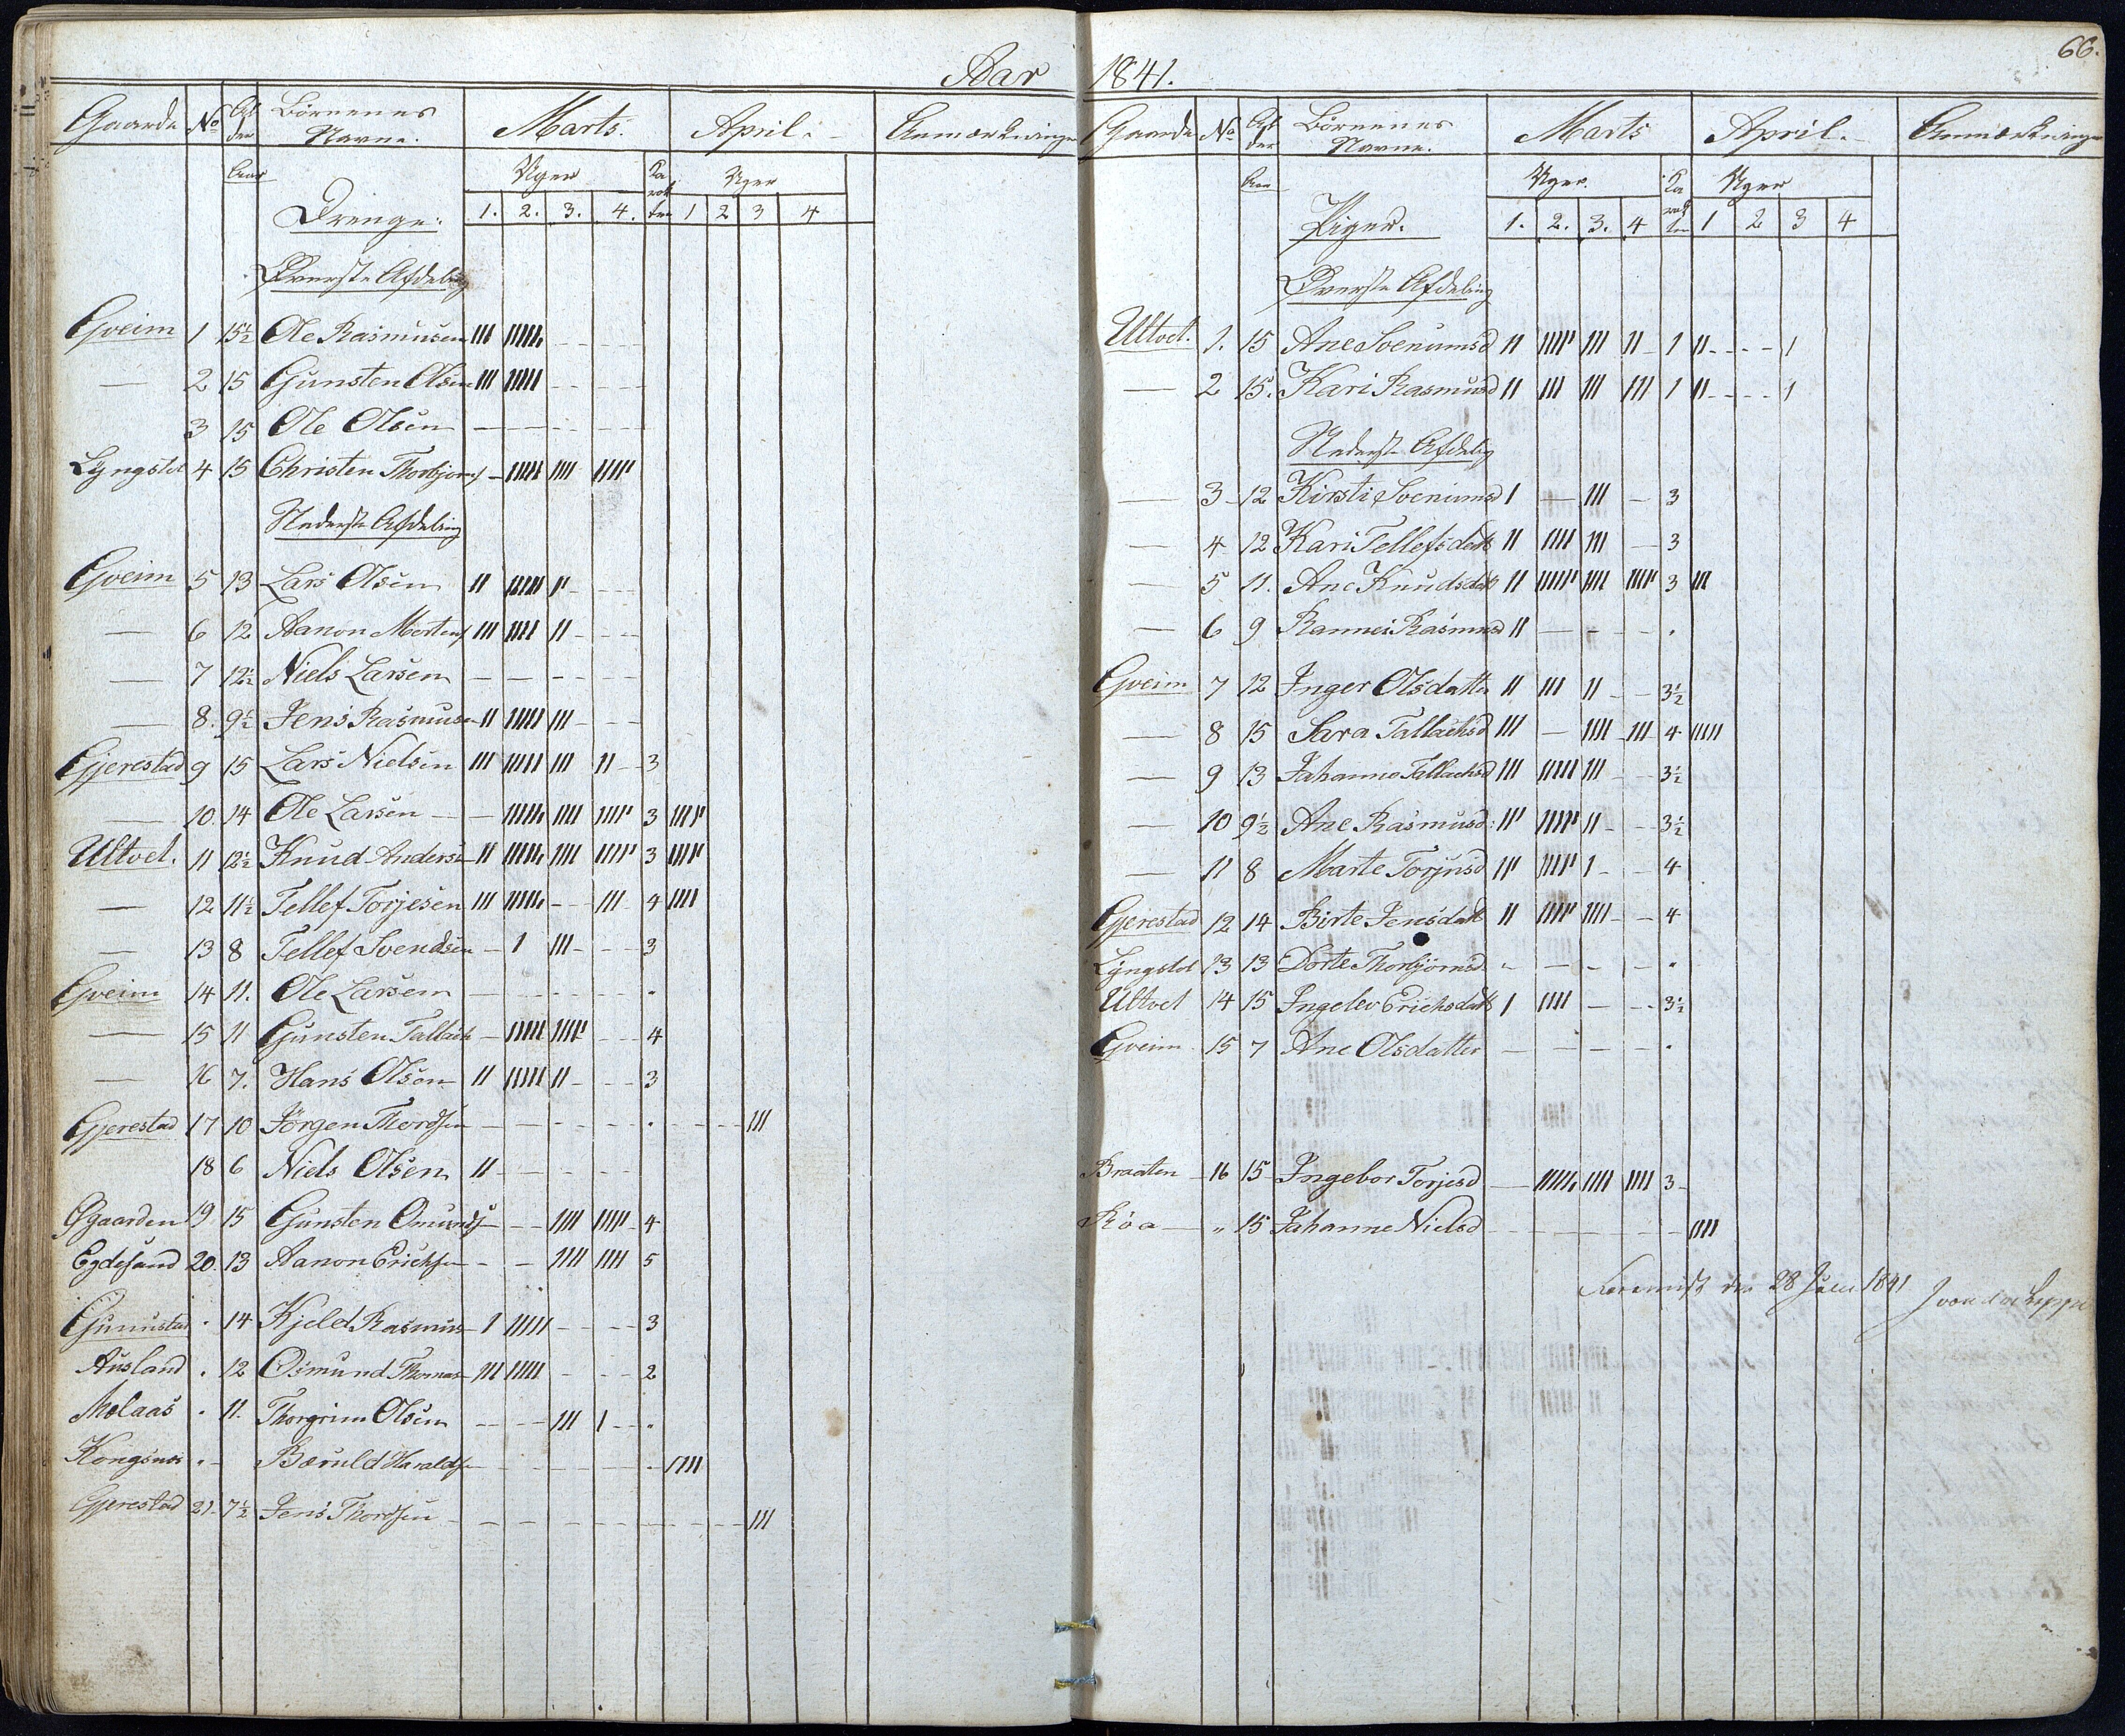 Aar 1841.
66.
Gaarde No Alder Børnenes Navne. Marts. April. Anmærkninger
Aar Uger Karakter Uger
Drenge. 1. 2. 3. 4. 1 2 3 4
Øverste Afdeling
Gveim 1 15½ Ole Rasmusen III IIIII
— 2 15 Gunsten Olsen III IIIII
3 15 Ole Olsen
Lyngstol 4 15 Christen Thorbjørns – IIIII IIII IIIII
Nederste Afdeling
Gveim 5 13 Lars Olsen II IIIII II
— 6 12 Aanon Mortens III IIII II
— 7 12½ Niels Larsen
— 8. 9½ Jens Rasmusen II IIIII III
Gjerestad 9 15 Lars Nielsen III IIIII III II 3
— 10. 14 Ole Larsen – IIIII IIII IIIII 3 IIII
Ultvet. 11 12½ Knud Anders II IIIII IIII IIIII 3 IIIII
— 12 11½ Tellef Torjesen III IIIII – III 4 IIII
— 13 8 Tellef Svendsen – I III 3
Gveim 14 11. Ole Larsen
— 15 11 Gunsten Tallach – IIIII IIIII 4
— 16 7. Hans Olson II IIIII II 3
Gjerestad 17 10 Jørgen Thordsen III
18 6 Niels Olsen II
19. 15 Gunsten Omunds – – IIII IIIII 4
Egdesund 20. 13 Aanon Erichsen – – IIII IIII 5
14 Kjeld Rasmus I IIIII 3
Ausland . 12 Osmund Thomas III IIIII 2
Molaas . 11. Thorgrim Olsen III I
Kongsnes Bæruld Haralds IIII
Gjerestad 21. 7½ Jens Thordsen III
Gaarde No Alder Børnenes Navne. Marts April. Anmærkninger
Aar Uger. Karakter Uger
Piger. 1. 2. 3. 4 1 2 3 4
Øverste Afdeling
Ultvet. 1. 15 Ane Svenumsd II IIIII III II 1 II I
— 2 15. Kari Rasmusd II III III III 1 II I
Nederste Afdeling
— 3 12 Kirsti Svenumsd I — III – 3
— 4 12 Kari Tellefsdatt II IIII III — 3
— 5 11. Ane Knudsdatt II IIIII IIII IIIII 3 III
— 6 9 Rannei Rasmusd II
Gveim 7 12 Inger Olsdatter II III II 3½
— 8 15 Sara Tallachsd III — IIII III 4 IIIII
— 9 13 Johanne Tallachsd III IIIII III 3½
— 10 9½ Ane Rasmusd: III IIIII II 3½
— 11 8 Marte Torjusd III IIIII I 4
Gjerestad 12 14 Birte Jensdatt II IIIII IIII 4
Lyngstol 13 13 Dorte Thorbjørnsd.
Ultvet 14 15 Ingelev Erichsdatt I IIII 3½
Gveim 15 7 Ane Olsdatter
Braaten 16 15 Ingebor Torjesd — IIIII IIII IIII 3
Røa „ 15 Johanne Nielsd IIII
28 1841